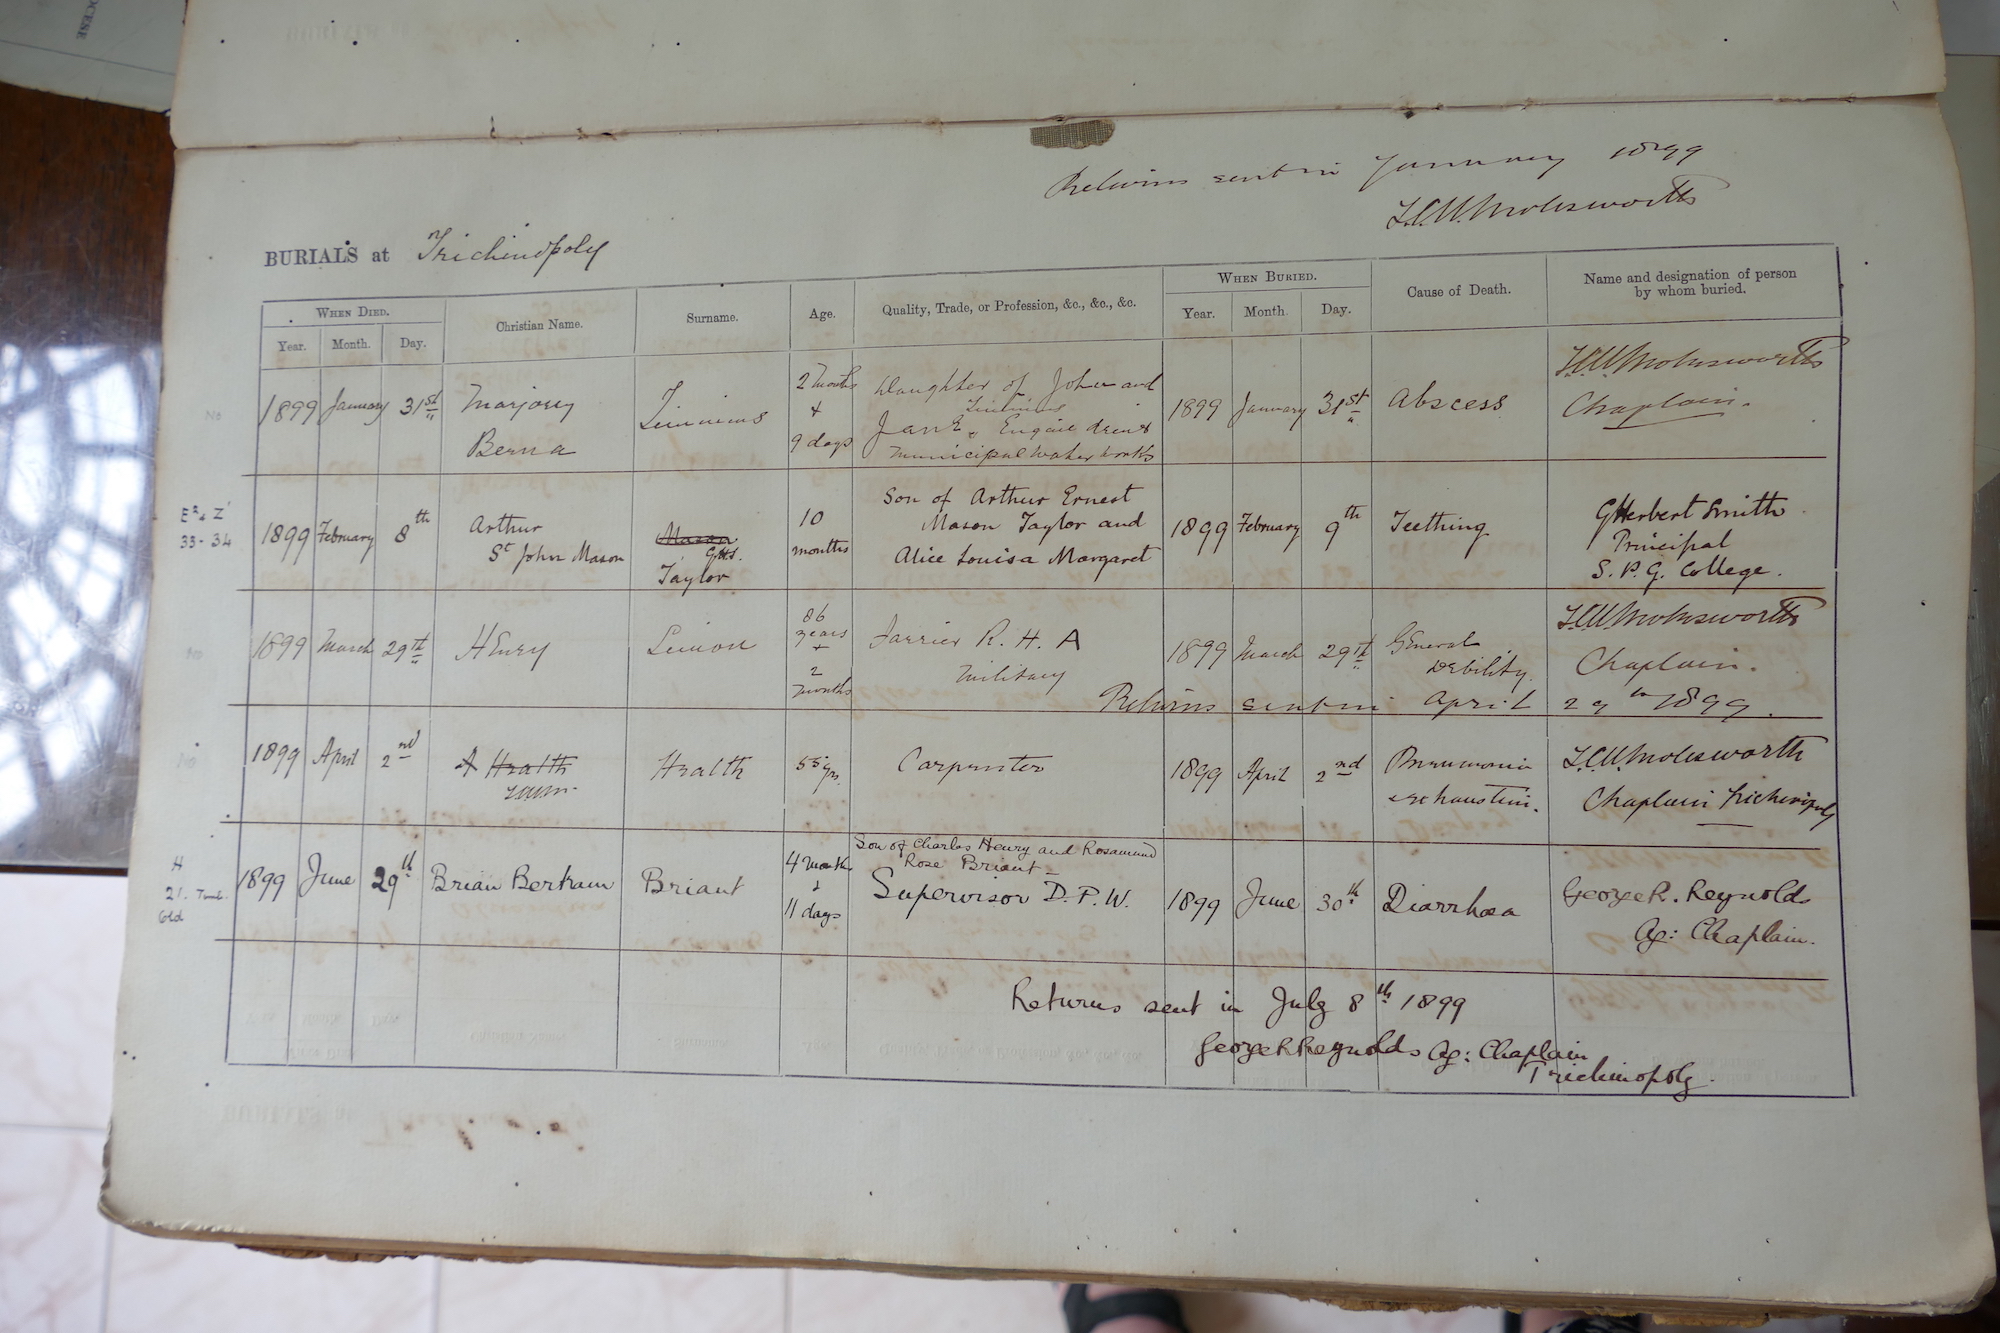 Returns sent in January 1899
BURIALS at Trichinopoly
When Died.
Christian Name.
Surname.
Age.
Quality, Trade, or Profession, &c., &c., &c.
When Buried.
Cause of Death.
Name and designation of person
by whom buried.
Year.
Month.
Day.
Year.
Month.
Day.
No
1899 January 31st
Marjory
Berna
2 months
+
9 days
Daughter of John and
Jane. Engine driver
Municipal Water Works
1899 January 31st
Abscess
Molesworth
Chaplain.
33-34
1899 February 8th
Arthur
St John Mason
Mason
G.H.S.
Taylor
10
months
Son of Arthur Ernest
Mason Taylor and
Alice Louisa Margaret
1899 February 9th
Teething
G Herbert Smith
Principal
S. P. G. College.
No
1899 March 29th
Henry
Simon
86
years
+
2
months
Farrier R. H. A
Military
1899 March 29th
General
Debility.
Molesworth
Chaplain.
Returns sent in April 29th 1899.
No
1899 April 2nd
Health
Health
55 yrs
Carpenter
1899 April 2nd
Pneumonia
exhaustion.
Molesworth
Chaplain Trichinopoly
H
21. Tomb.
Old
1899 June 29th
Brian Bertram
Briant
4 months
+
11 days
Son of Charles Henry and Rosamund
Rose Briant
Supervisor D.P.W.
1899 June 30th
Diarrhœa
George R. Reynolds
Ag: Chaplain.
Returns sent in July 8th 1899
George R Reynolds Ag: Chaplain
Trichinopoly.